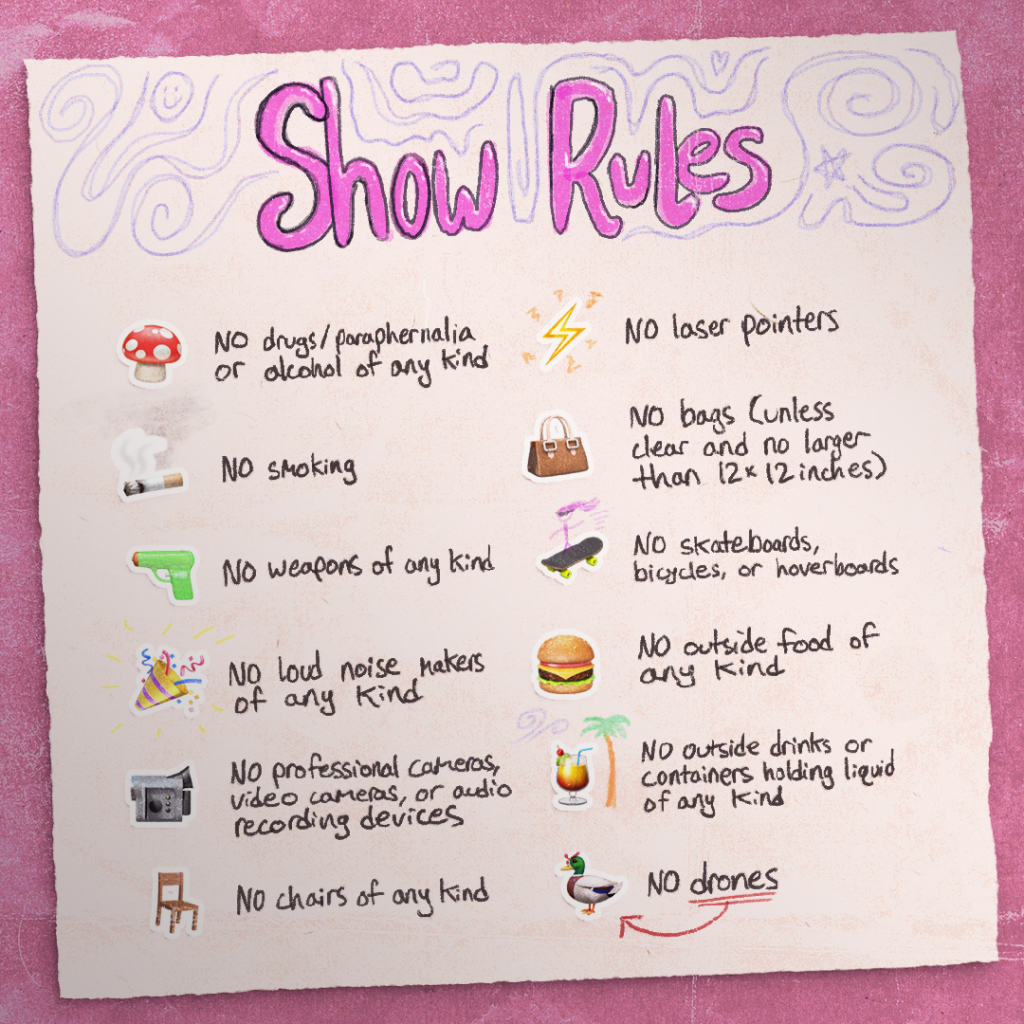 Show Rules
NO drugs/paraphernalia
or alcohol of any kind
NO smoking
NO weapons of any kind
NO loud noise makers
of any kind
NO professional cameras,
video cameras, or audio
recording devices
NO chairs of any kind
NO laser pointers
NO bags (unless
clear and no larger
than 12x12 inches)
NO skateboards,
bicycles, or hoverboards
NO outside food of
any kind
NO outside drinks or
containers holding liquid
of any kind
NO drones